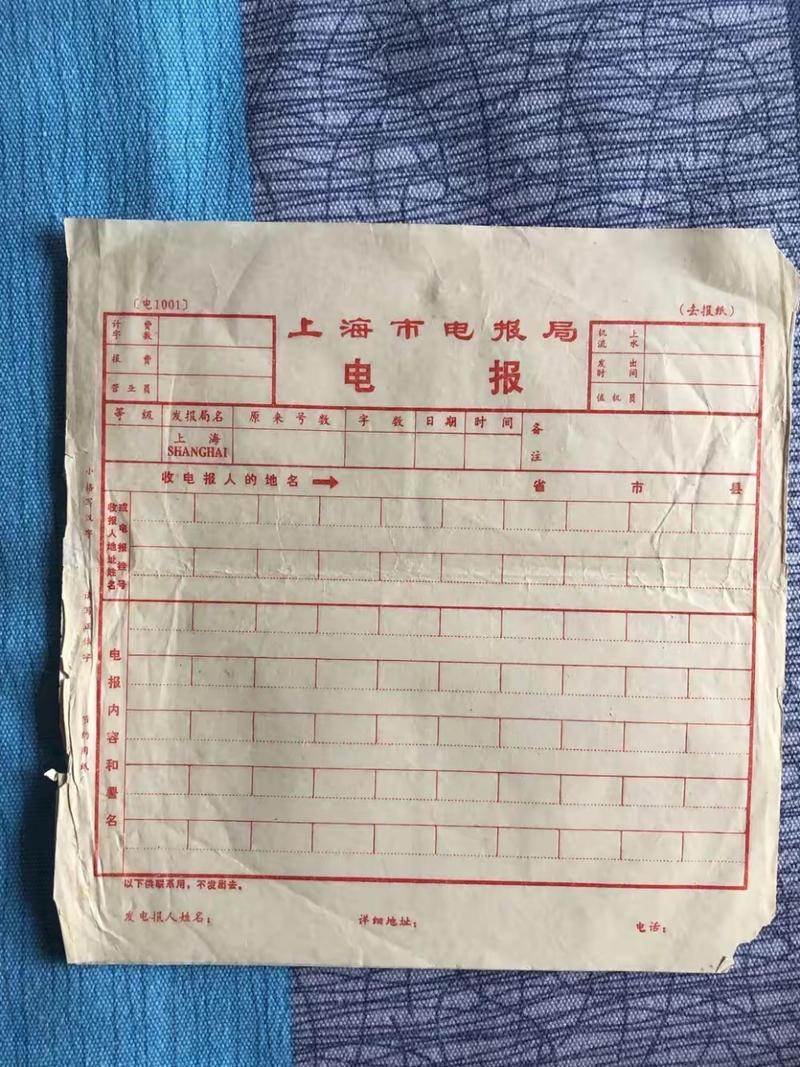 〔电1001〕
(去报纸)
上海市电报局
电 报
计费
字数
报 费
营业员
机上
流水
发出
时间
值机员
等 级 发报局名 原来号数 字 数 日期 时间 备注
上 海
SHANGHAI
收电报人的地名 → 省 市 县
收报人地址姓名
或电报挂号
电报内容和署名
小格写汉字
请写正体字
节约用纸
以下供联系用,不发出去。
发电报人姓名: 详细地址: 电话: